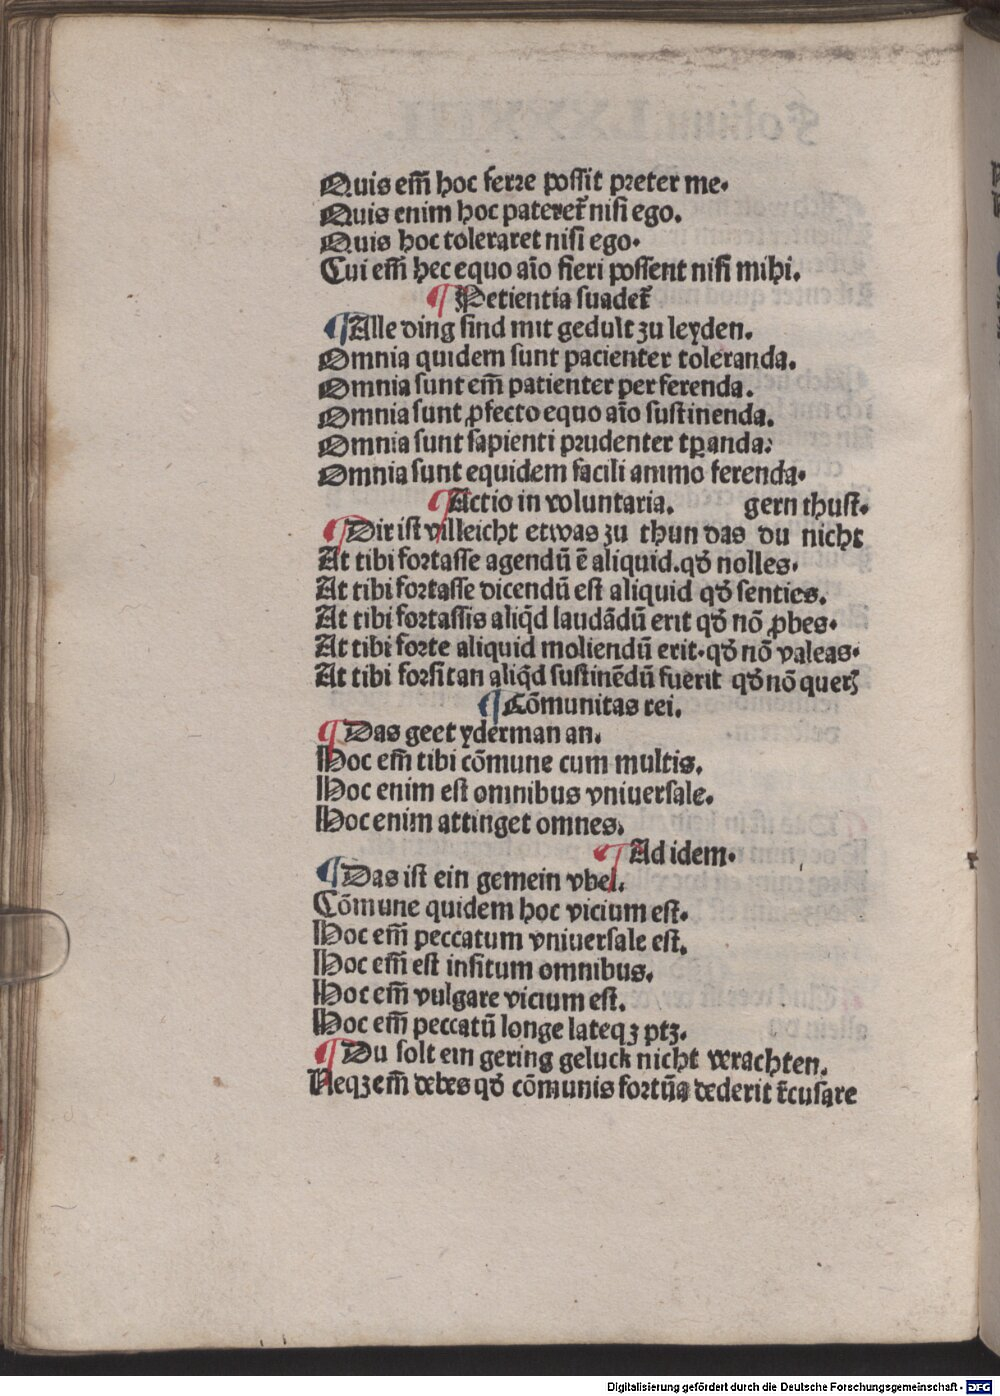 Quis em̄ hoc ferre poſſit preter me.
Quis enim hoc pateret᷑ niſi ego.
Quis hoc toleraret niſi ego.
Cui em̄ hec equo aīo fieri poſſent niſi mihi.
¶ Petientia ſuadet᷑
¶ Alle ding ſind mit gedult zu leyden.
Omnia quidem ſunt pacienter toleranda.
Omnia ſunt em̄ patienter perferenda.
Omnia ſunt ꝓfecto equo aīo ſuſtinenda.
Omnia ſunt ſapienti prudenter tꝑanda.
Omnia ſunt equidem facili animo ferenda.
¶ Actio in voluntaria. gern thuſt.
¶ Dir iſt villeicht etwas zu thun das du nicht
At tibi fortaſſe agendū ē aliquid. qd̓ nolles.
At tibi fortaſſe dicendū eſt aliquid qd̓ ſenties.
At tibi fortaſſis aliq̄d laudādū erit qd̓ nō ꝓbes.
At tibi forte aliquid moliendū erit. qd̓ nō valeas.
At tibi forſitan aliq̄d ſuſtinēdū fuerit qd̓ nō querꝭ
¶ Cōmunitas rei.
¶ Das geet yderman an.
Hoc em̄ tibi cōmune cum multis.
Hoc enim eſt omnibus vniuerſale.
Hoc enim attinget omnes.
¶ Ad idem.
¶ Das iſt ein gemein vbel.
Cōmune quidem hoc vicium eſt.
Hoc em̄ peccatum vniuerſale eſt.
Hoc em̄ eſt inſitum omnibus.
Hoc em̄ vulgare vicium eſt.
Hoc em̄ peccatū longe lateqꝫ ptꝫ.
¶ Du ſolt ein gering geluck nicht verachten.
Neqꝫ em̄ debes qd̓ cōmunis fortūa dederit r̄cuſare
Digitalisierung gefördert durch die Deutsche Forschungsgemeinschaft - DFG